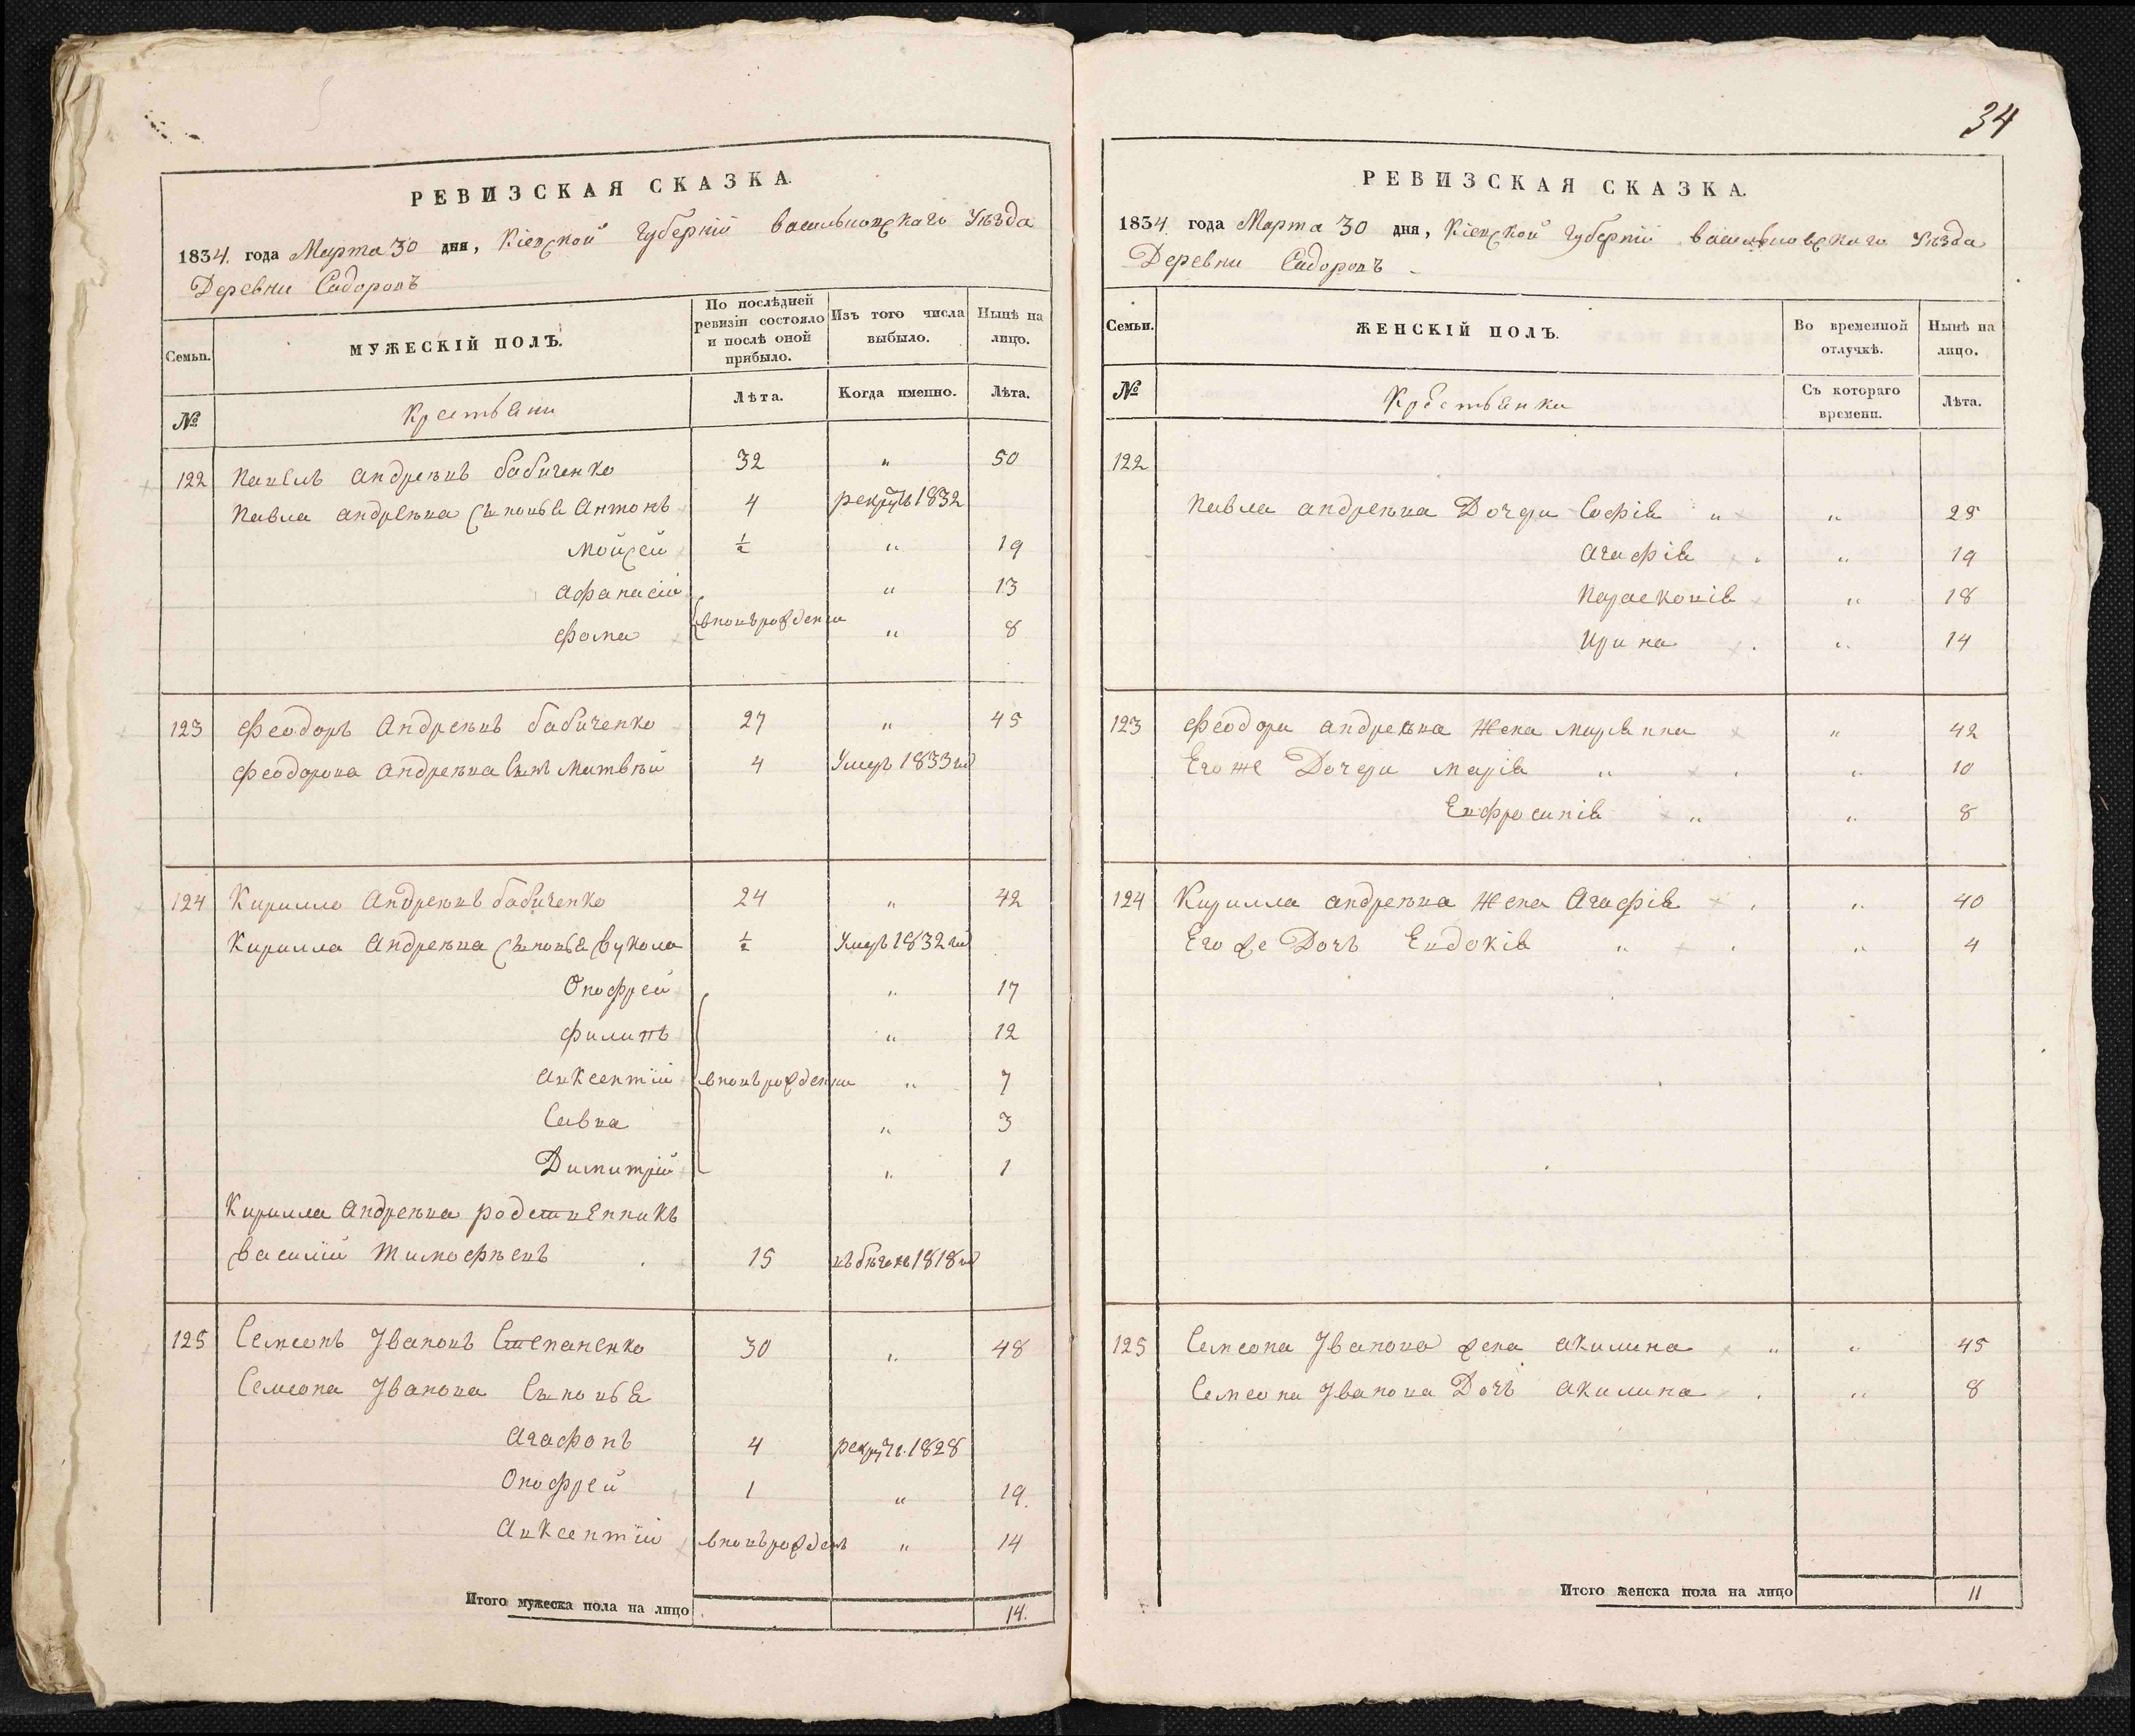 34
РЕВИЗСКАЯ СКАЗКА.
1834. года Марта 30 дня, Кіевской Губерніи Васильковскаго Уѣзда
Деревни Сидоровъ
Семьи.
МУЖЕСКІЙ ПОЛЪ.
По послѣдней ревизіи состояло и послѣ оной прибыло.
Изъ того числа выбыло.
Нынѣ на лицо.
№
Крестьяни
Лѣта.
Когда именно.
Лѣта.
122 Павелъ Андреѣвъ Бабиченко 32 " 50
Павла Андреѣва Сыновья Антонъ 4 рекрутъ 1832
Мойсей ½ " 19
Афанасій " 13
вновьрождени
Фома " 8
123 Феодоръ Андреѣвъ Бабиченко 27 " 45
Феодорова Андреѣва Сынъ Матвѣй 4 Умеръ 1833 го
124 Кирилло Андреѣвъ Бабиченко 24 " 42
Кирилла Андреѣва Сыновья Вукола ½ Умеръ 1832 го
Онофрей " 17
Филипъ " 12
Авксентій вновьрождении " 7
Савва " 3
Димитрій " 1
Кирилла Андреѣва родственникъ
Василій Тимофѣевъ 15 въ бѣгахъ 1818 го
125 Семеонъ Івановъ Степаненко 30 " 48
Семеона Іванова Сыновья
Агафонъ 4 рекрутъ. 1828
Онофрей 1 " 19.
Авксентій вновьрожденъ " 14
Итого мужеска пола на лицо 14.
РЕВИЗСКАЯ СКАЗКА.
1834. года Марта 30 дня, Кіевской Губерніи Васильковскаго Уѣзда
Деревни Сидоровъ
Семьи.
ЖЕНСКІЙ ПОЛЪ.
Во временной отлучкѣ.
Нынѣ на лицо.
№
Крестьянки
Съ котораго времени.
Лѣта.
122
Павла Андреѣва Дочери Софія " " 25
Агафія " 19
Парасковія " 18
Ирина " 14
123 Феодора Андреѣва Жена Маріанна " 42
Егоже Дочери Марія " " 10
Евфросинія " " 8
124 Кирилла Андреѣва Жена Агафія " 40
Егоже Дочь Евдокія " " 4
125 Семеона Іванова жена Акилина " " 45
Семеона Іванова Дочь Акилина " 8
Итого женска пола на лицо 11